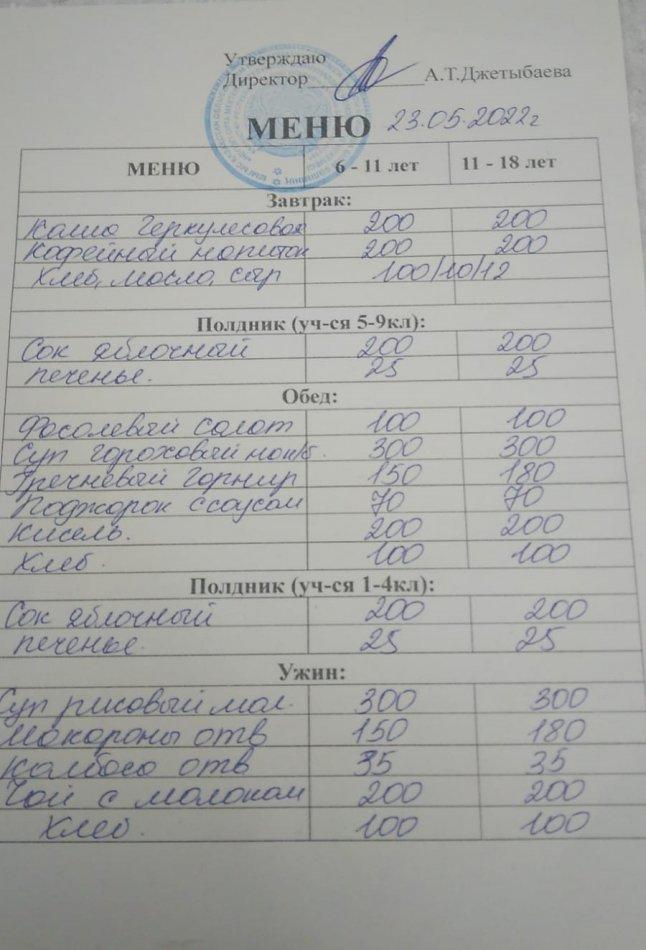 Утверждаю
Директор____________А.Т.Джетыбаева
МЕНЮ 23.05.2022г
МЕНЮ 6 - 11 лет 11 - 18 лет
Завтрак:
Каша Геркулесовая 200 200
Кофейный напиток 200 200
Хлеб, масло, сыр 100/10/12
Полдник (уч-ся 5-9кл):
Сок яблочный 200 200
печенье. 25 25
Обед:
Фасолевый салат 100 100
Суп гороховый 300 300
Гречневый гарнир 150 180
Поджарок с соусом 70 70
Кисель. 200 200
Хлеб. 100 100
Полдник (уч-ся 1-4кл):
Сок яблочный 200 200
печенье. 25 25
Ужин:
Суп рисовый мол. 300 300
Макароны отв 150 180
Колбаса отв 35 35
Чай с молоком 200 200
Хлеб. 100 100